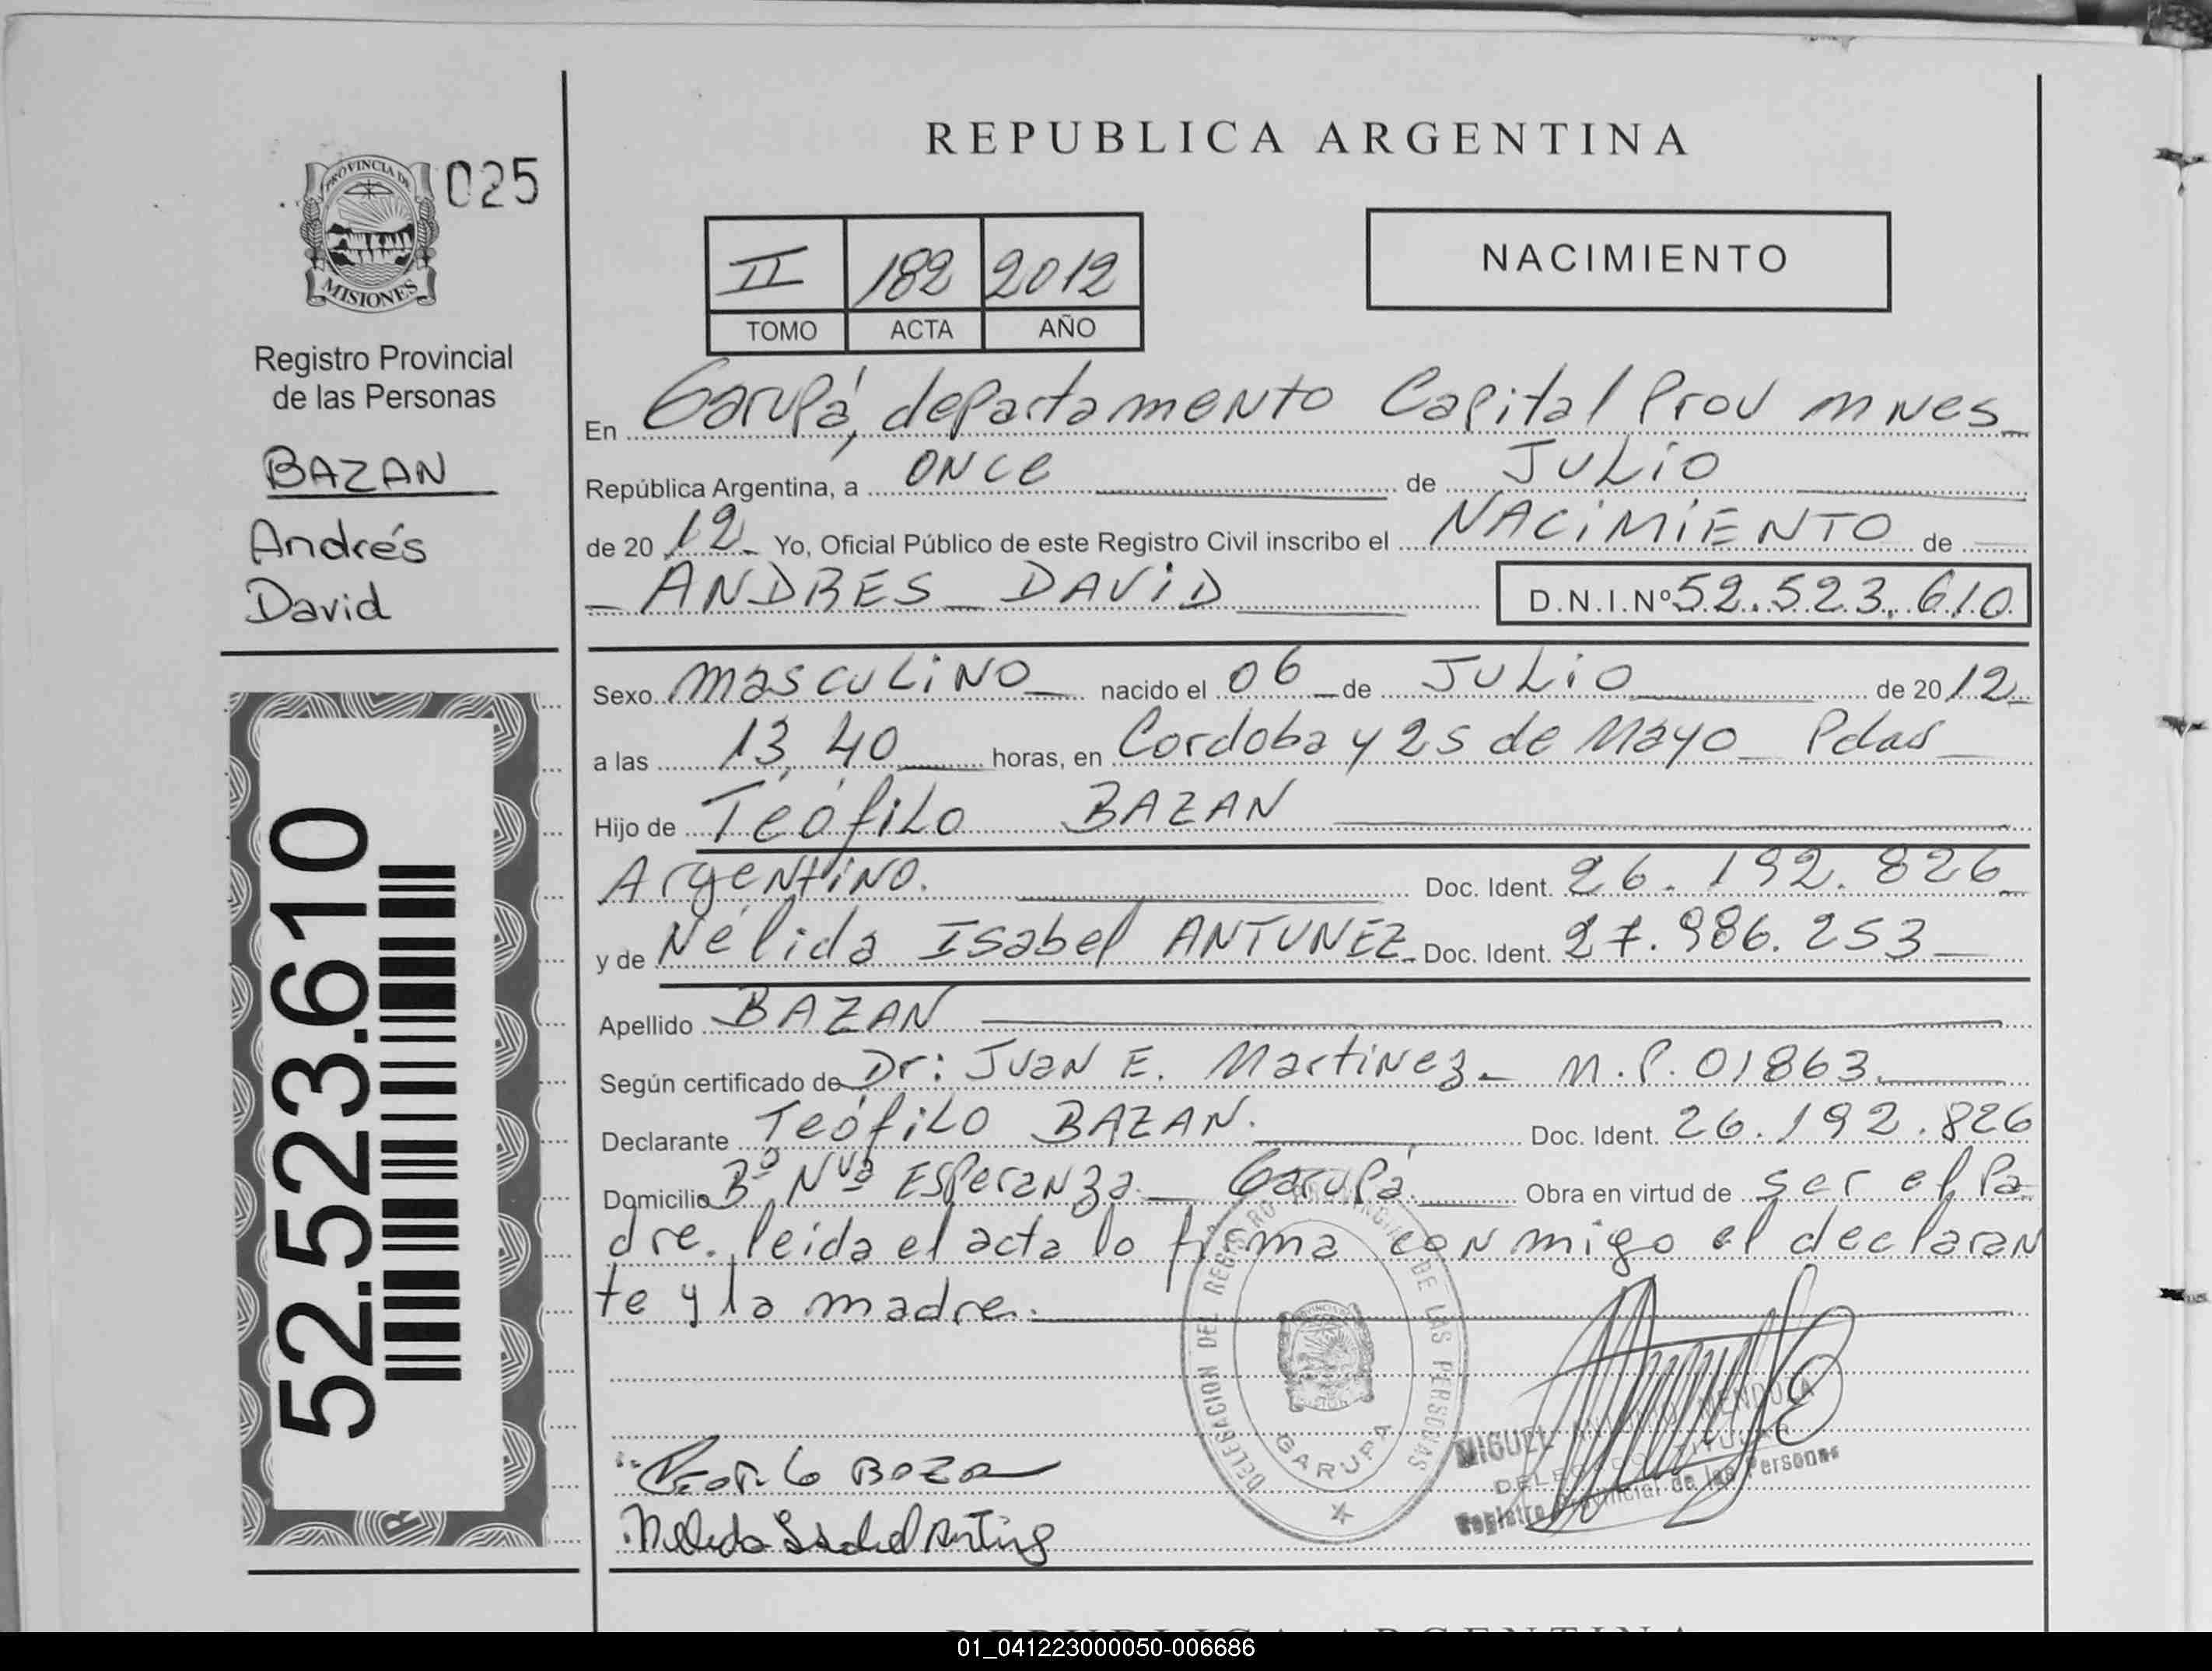 REPUBLICA ARGENTINA
PROVINCIA DE
MISIONES
025
Registro Provincial
de las Personas
BAZAN
Andrés
David
52.523.610
II 182 2012
TOMO ACTA AÑO
NACIMIENTO
En Garupá, departamento Capital Prov mnes
República Argentina, a once de Julio
de 2012 Yo, Oficial Público de este Registro Civil inscribo el NACIMIENTO de
ANDRES DAVID D.N.I.Nº 52.523.610
Sexo masculino nacido el 06 de Julio de 2012
a las 13,40 horas, en Cordoba y 25 de Mayo Pdas
Hijo de Teófilo BAZAN
Argentino. Doc. Ident. 26.192.826
y de Nélida Isabel ANTUNEZ Doc. Ident. 27.986.253
Apellido BAZAN
Según certificado de Dr: Juan E. Martinez. M.P. 01863.
Declarante Teófilo BAZAN. Doc. Ident. 26.192.826
Domicilio Bº Nvª Esperanza Garupá. Obra en virtud de ser el Pa
dre. leida el acta lo firma conmigo el declaran
te y la madre.
DELEGACION DEL REGISTRO PROVINCIAL DE LAS PERSONAS
GARUPA
MIGUEL ANTONIO MENDOZA
DELEGADO TITULAR
Registro Provincial de las Personas
01_041223000050-006686